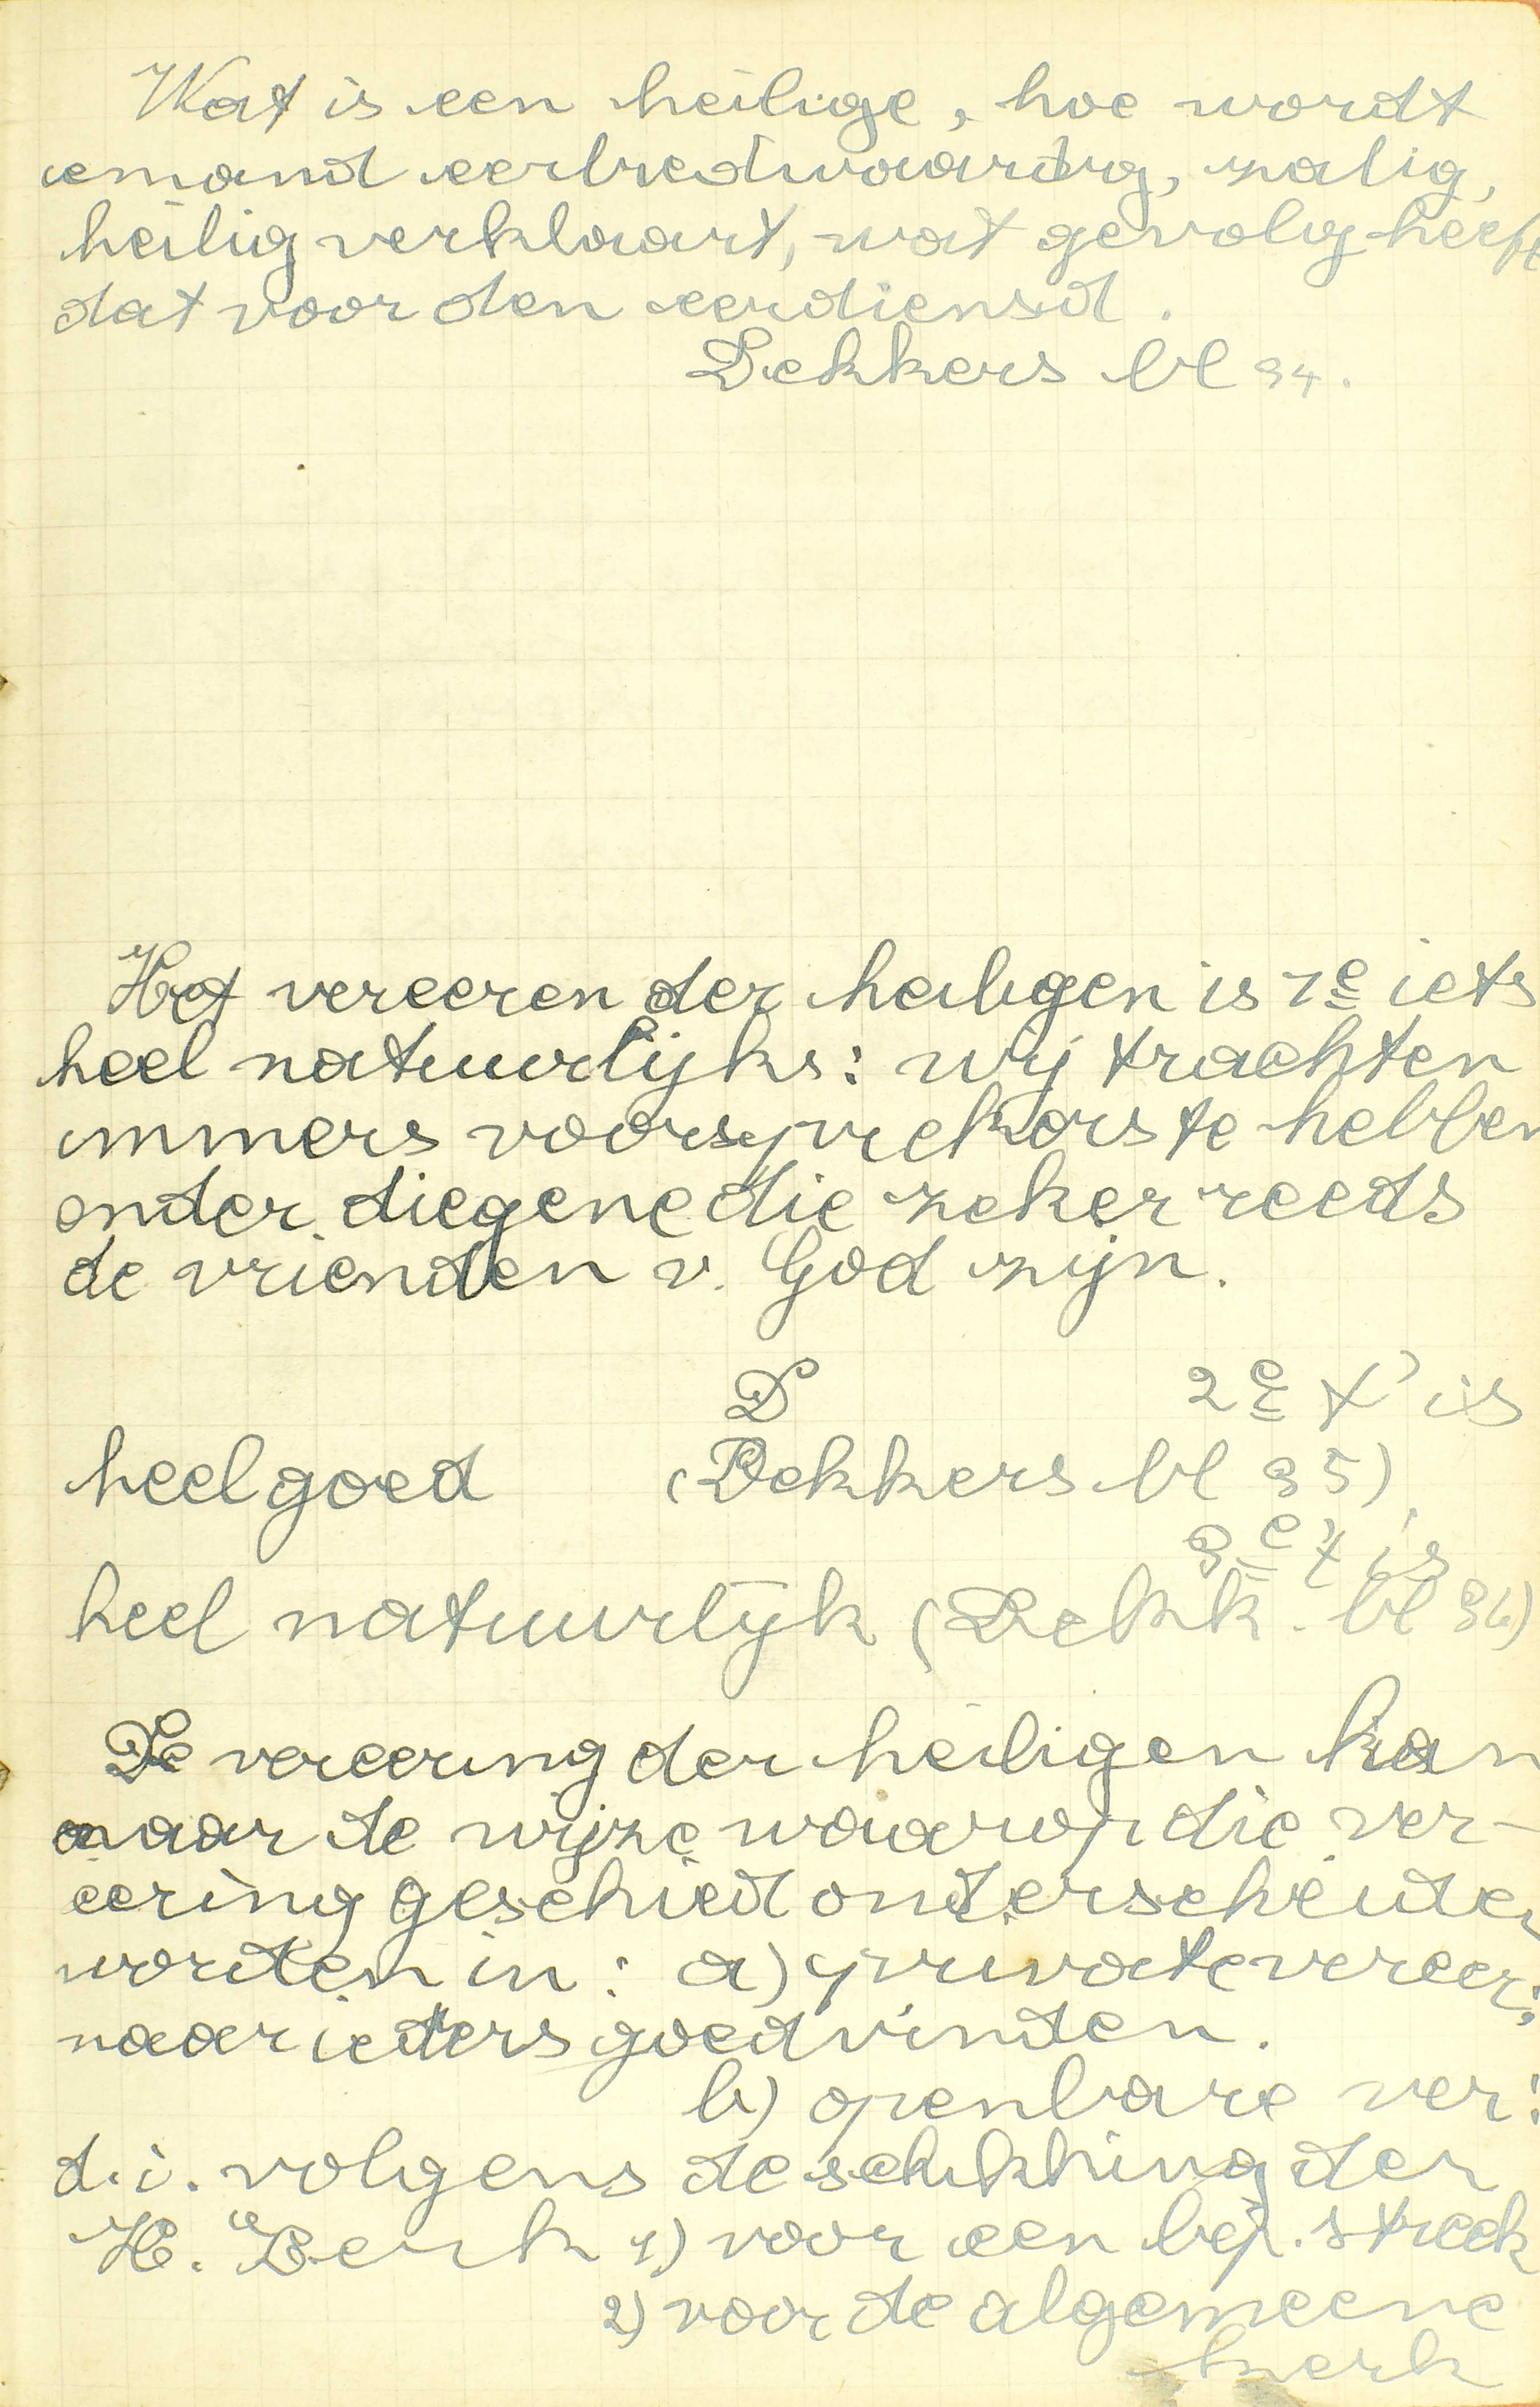 Wat is een heilige, hoe wordt
iemand eerbiedwaardig, zalig,
heilig verklaart, wat gevolg heeft
dat voor den eerdiensd.
Dekkers bl 34.
Het vereeren der heiligen is 1e iets
heel natuurlijks: wij trachten
immers voorsprekers te hebben
onder diegene die zeker reeds
de vrienden v. God zijn.
D 2e t' is
heel goed (Dekkers bl 35)
3e t' is
heel natuurlijk (Dekk. bl 36)
De vereering der heiligen kan
naar de wijze waarop die ver-
eering geschied onderscheiden
worden in: a) private vereer:
naar ieders goedvinden.
b) openbare ver:
d.i. volgens de schikking der
H. Kerk 1) voor een bep. streek
2) voor de algemeene
kerk